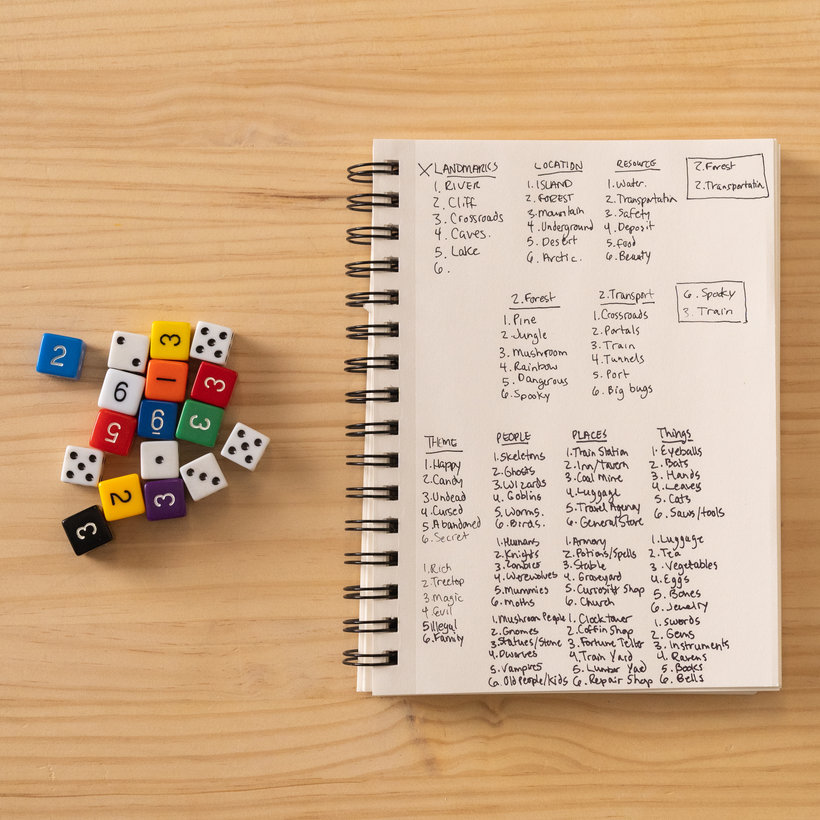 X LANDMARKS
1. RIVER
2. Cliff
3. Crossroads
4. Caves.
5. Lake
6.
LOCATION
1. ISLAND
2. FOREST
3. mountain
4. Underground
5. Desert
6. Arctic.
RESOURCE
1. Water.
2. Transportation
3. Safety
4. Deposit
5. Food
6. Beauty
2. Forest
2. Transportation
2. Forest
1. Pine
2. Jungle
3. Mushroom
4. Rainbow
5. Dangerous
6. Spooky
2. Transport
1. Crossroads
2. Portals
3. Train
4. Tunnels
5. Port
6. Big bugs
6. Spooky
3. Train
THEME
1. Happy
2. Candy
3. Undead
4. Cursed
5 Abandoned
6. Secret
1. Rich
2. Treetop
3 Magic
4 Evil
5 Illegal
6. Family
PEOPLE
1. Skeletons
2. Ghosts
3. Wizards
4. Goblins
5. Worms.
6. Birds.
1. Humans
2. Knights
3. Zombies
4. Werewolves
5. Mummies
6. Moths
1. Mushroom People
2. Gnomes
3. Statues/Stone
4. Dwarves
5. Vampires
6. Old People/Kids
PLACES
1. Train Station
2. Inn/Tavern
3. Coal Mine
4. Luggage
5. Travel Agency
6. General Store
1. Armory
2. Potions/Spells
3. Stable
4. Graveyard
5. Curiosity Shop
6. Church
1. Clocktower
2. Coffin Shop
3. Fortune Teller
4. Train Yard
5. Lumber Yard
6. Repair Shop
Things
1. Eyeballs
2. Bats
3. Hands
4. Leaves
5. Cats
6. Saws/tools
1. Luggage
2. Tea
3. Vegetables
4. Eggs
5. Bones
6. Jewelry
1. Swords
2. Gems
3. Instruments
4. Ravens
5. Books
6. Bells
2
3
6
1
3
5
6
3
2
3
3